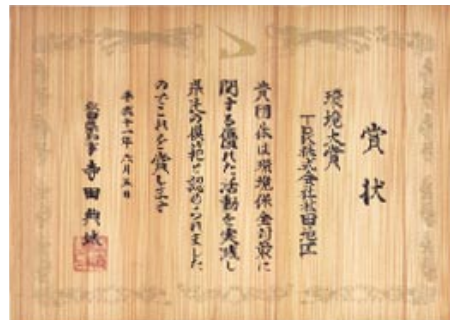 賞状
環境大賞
TDK株式会社秋田地区
貴団体は環境保全対策に
関する優れた活動を実践し
県民の模範と認められました
のでこれを賞します
平成十一年六月五日
秋田県知事 寺田典城